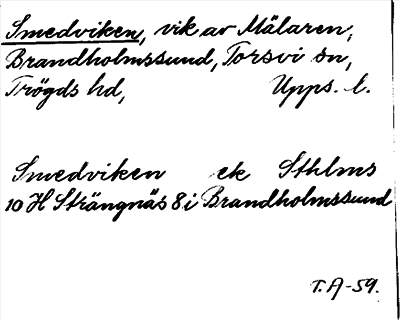 Smedviken, vik av Mälaren,
Brandholmssund, Torsvi sn,
Trögds hd, Upps. l.
Smedviken ek Sthlms
10 H Strängnäs 8 i Brandholmssund
T. A-59.